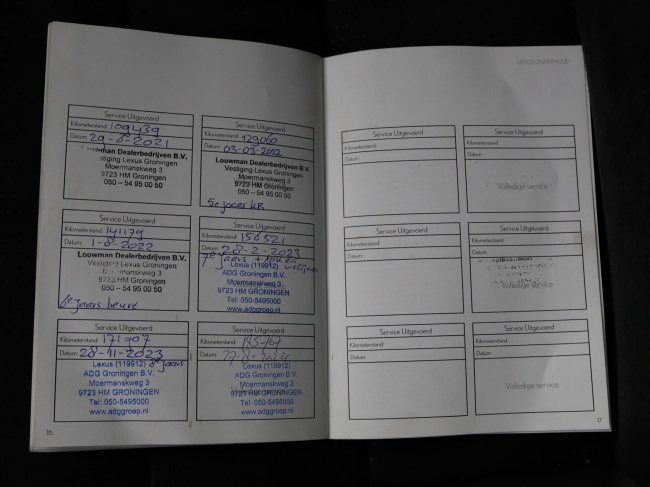 LEXUS ONDERHOUD
Service Uitgevoerd
Kilometerstand: 109439
Datum: 29-6-2021
wman Dealerbedrijven B.V.
stiging Lexus Groningen
Moermanskweg 3
9723 HM Groningen
050 – 54 95 00 50
Service Uitgevoerd
Kilometerstand:
Datum: 03-03-2022
Louwman Dealerbedrijven B.V.
Vestiging Lexus Groningen
Moermanskweg 3
9723 HM Groningen
050 – 54 95 00 50
5e jaars
Service Uitgevoerd
Kilometerstand: 141179
Datum: 1-8-2022
Louwman Dealerbedrijven B.V.
Vestiging Lexus Groningen
manskweg 3
9723 HM Groningen
050 – 54 95 00 50
6e jaars beurt
Service Uitgevoerd
Kilometerstand: 156521
Datum: 28-2-2023
7e jaars +
Lexus (119912)
ADG Groningen B.V.
Moermanskweg 3
9723 HM GRONINGEN
Tel: 050-5495000
www.adggroep.nl
Service Uitgevoerd
Kilometerstand: 171907
Datum: 28-11-2023 8e jaars
Lexus (119912)
ADG Groningen B.V.
Moermanskweg 3
9723 HM GRONINGEN
Tel: 050-5495000
www.adggroep.nl
Service Uitgevoerd
Kilometerstand:
Datum:
Lexus (119912)
ADG Groningen B.V.
Moermanskweg 3
9723 HM GRONINGEN
Tel: 050-5495000
www.adggroep.nl
16
Service Uitgevoerd
Kilometerstand:
Datum:
Service Uitgevoerd
Kilometerstand:
Datum:
Volledige service
Service Uitgevoerd
Kilometerstand:
Datum:
Service Uitgevoerd
Kilometerstand:
Datum:
Volledige service
Service Uitgevoerd
Kilometerstand:
Datum:
Service Uitgevoerd
Kilometerstand:
Datum:
Volledige service
17